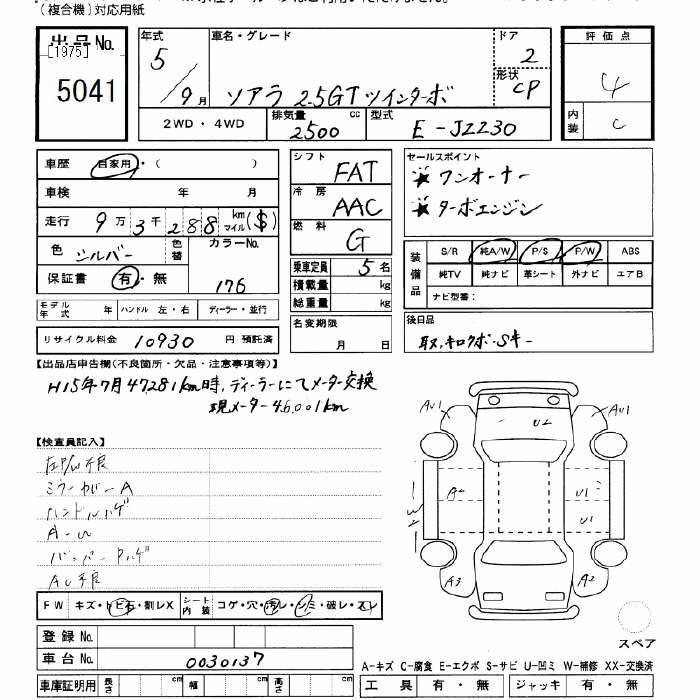 (複合機)対応用紙
出品No.
[1975]
5041
年式
5/9月
車名・グレード
ソアラ 2.5GTツインターボ
ドア
2
形状
CP
2WD・4WD
排気量
2500 cc
型式
E-JZZ30
評価点
4
内装
C
車歴 自家用・( )
車検 年 月
走行 9万3千288 km マイル ($)
色 シルバー 色替 カラーNo. 176
保証書 有・無
モデル年式 ハンドル 左・右 ディーラー・並行
リサイクル料金 10930 円 預託済
シフト FAT
冷房 AAC
燃料 G
乗車定員 5名
積載量 kg
総重量 kg
名変期限
月 日
セールスポイント
★ワンオーナー
★ターボエンジン
装備品
S/R 純A/W P/S P/W ABS
純TV 純ナビ 革シート 外ナビ エアB
ナビ型番:
後日品
取、キロクボ・Sキー
【出品店申告欄(不良箇所・欠品・注意事項等)】
H15年7月47,281km時、ディーラーにてメーター交換
現メーター46,001km
【検査員記入】
左P/W不良
ミラーカバーA
ハンドルハゲ
A-U
バンパーPハゲ
AC不良
FW キズ・トビ石・割レX シート内装 コゲ・穴・汚レ・シミ・破レ・スレ
登録No.
車台No. 0030137
車庫証明用 長さ cm 幅 cm 高さ cm
AU1
U2
AU1
A2
U1
W
U1
A3
A2
スペア
A-キズ C-腐食 E-エクボ S-サビ U-凹ミ W-補修 XX-交換済
工具 有・無 ジャッキ 有・無